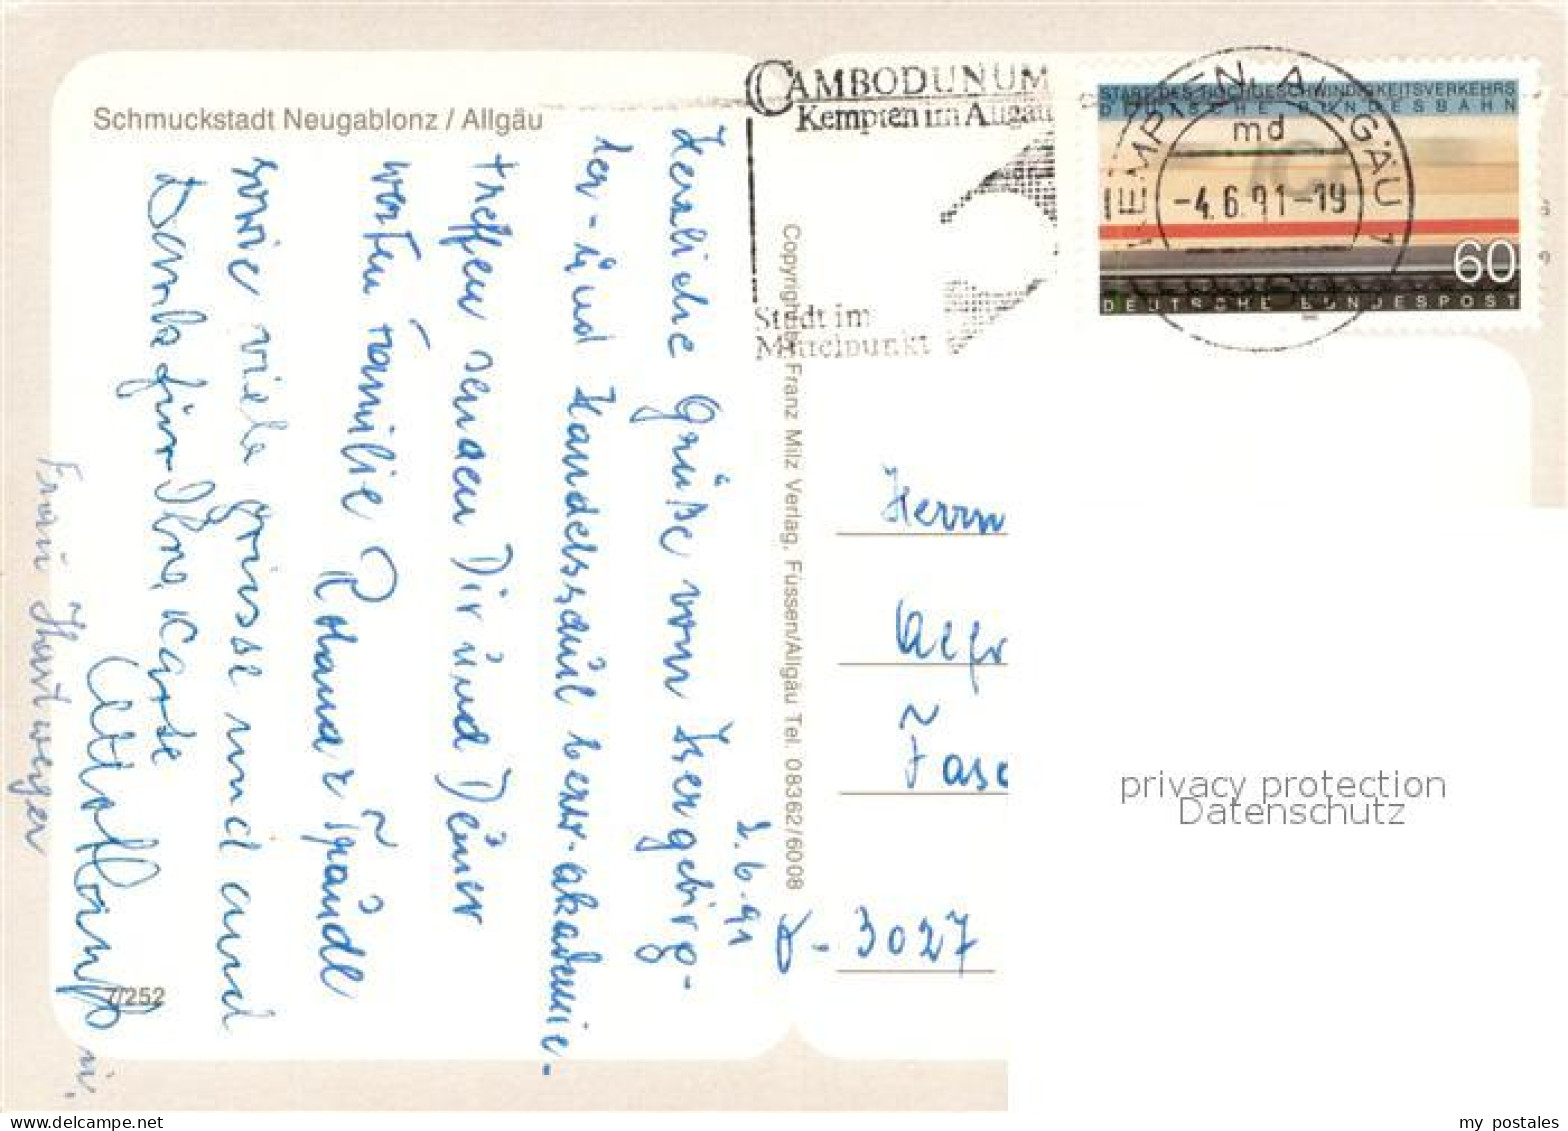 Schmuckstadt Neugablonz / Allgäu
CAMBODUNUM
Kempten im Allgäu
Stadt im
Mittelpunkt
KEMPTEN, ALLGÄU 1
md
-4.6.91-19
START DES HOCHGESCHWINDIGKEITSVERKEHRS
DEUTSCHE BUNDESBAHN
60
DEUTSCHE BUNDESPOST
2.6.91
Herzliche Grüße vom Isergebirg-
ler- und
treffen senden Dir und Deiner
werten Familie
sowie viele Grüsse und auch
Dank für Ihre Karte
7/252
Copyright by Franz Milz Verlag, Füssen/Allgäu Tel. 08362/6008
Herrn
Alfr
Fasc
D-3027
privacy protection
Datenschutz
my_postales